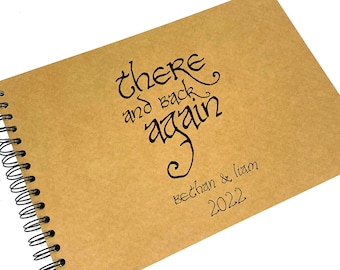 there
and back
again
Bethan & liam
2022